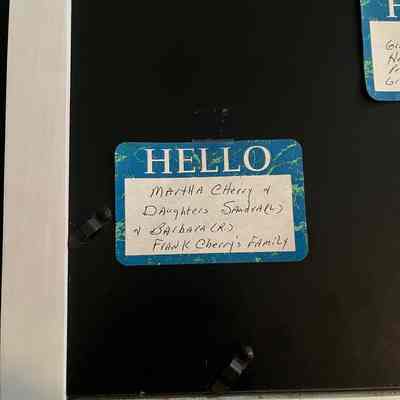 HELLO
MARTHA CHERRY &
DAUGHTERS SANDRA(L)
& BARBARA(R)
FRANK CHERRY'S FAMILY